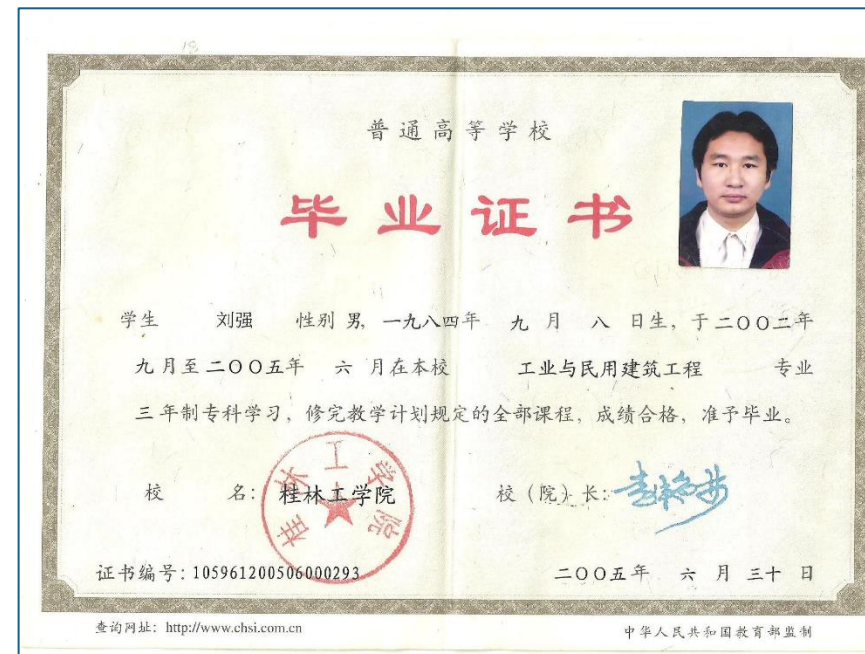 18
普通高等学校
毕业证书
学生 刘强 性别 男, 一九八四年 九 月 八 日生, 于二〇〇二年
九月至二〇〇五年 六 月在本校 工业与民用建筑工程 专业
三年制专科学习, 修完教学计划规定的全部课程, 成绩合格, 准予毕业。
桂林工学院
校 名: 桂林工学院 校（院）长:
证书编号: 105961200506000293 二〇〇五年 六 月 三十 日
查询网址: http://www.chsi.com.cn 中华人民共和国教育部监制